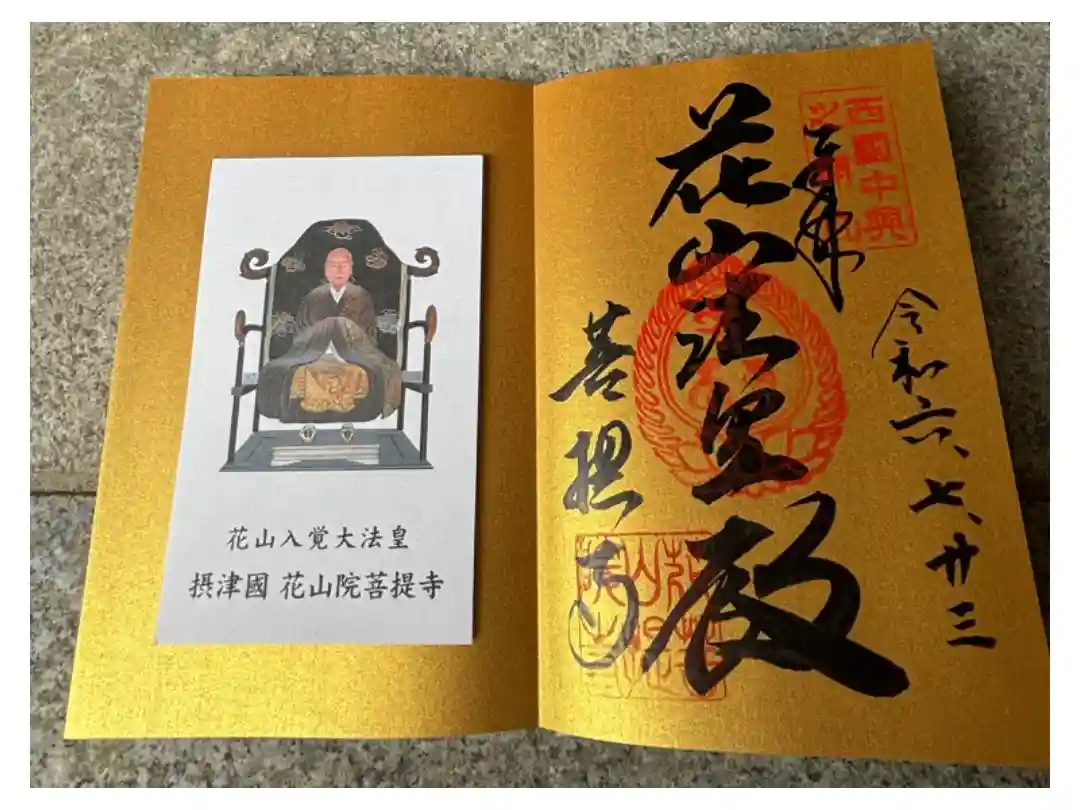 花山入覚大法皇
摂津國 花山院菩提寺
西國中興
令和六、七、廿三
奉拝
花山法皇殿
菩提寺